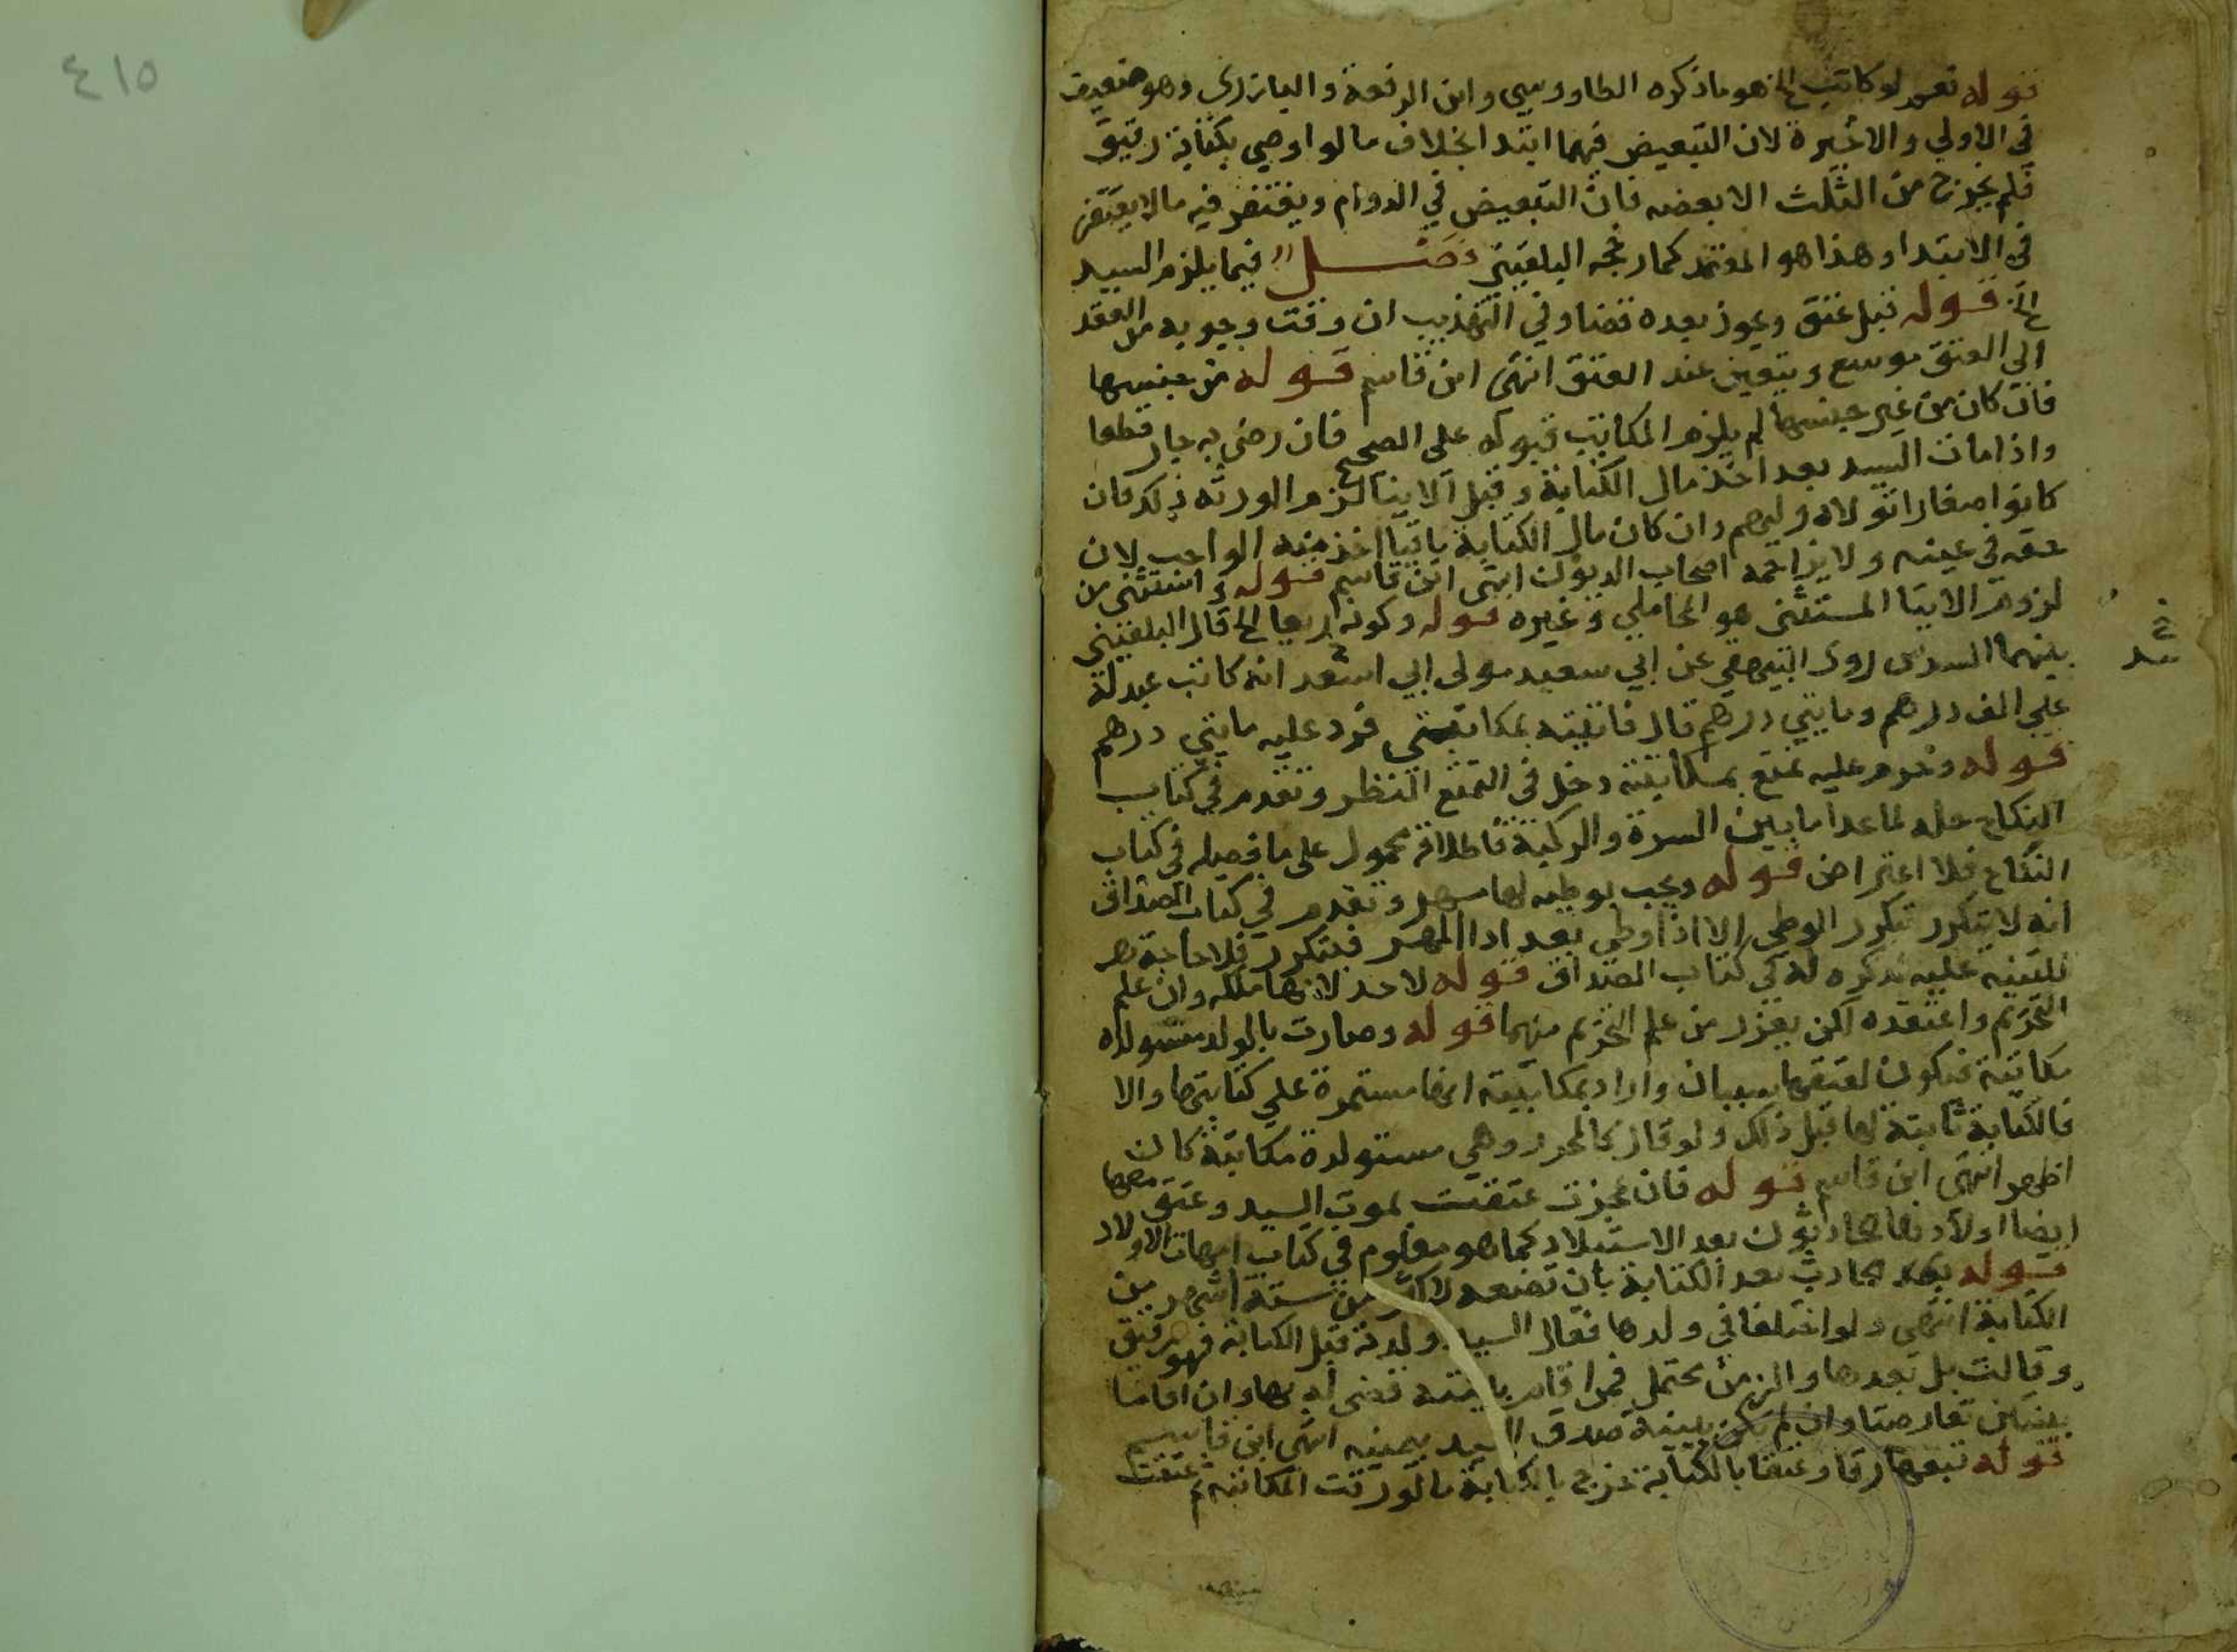 ٤١٥
قوله نعم لو كاتب الخ هو ما ذكره الطاووسي وابن الرفعة والبارزي وهو ضعيف
في الاولي والاخيرة لان التبعيض فيهما ابتدا بخلاف ما لو اوصي بكتابة رقيق
فلم يخرج من الثلث الا بعضه فان التبعيض في الدوام ويغتفر فيه ما لا يغتفر
في الابتدا وهذا هو المعتمد كما رجحه البلقيني فصل فيما يلزم السيد
الخ قوله قبل عتق ويجوز بعده قضا وفي التهذيب ان وقت وجوبه من العقد
الي العتق موسع ويتعين عند العتق انتهى ابن قاسم قوله من جنسها
فان كان من غير جنسها لم يلزم المكاتب قبوله على الصحيح فان رضي به جاز قطعا
واذا مات السيد بعد اخذ مال الكتابة وقبل الايتا لزم الورثة ذلك فان
كانوا صغارا تولاه وليهم وان كان مال الكتابة باقيا اخذ منه الواجب لان
حقه في عينه ولا يزاحمه اصحاب الديون انتهى ابن قاسم قوله واستثنى من
لزوم الايتا المستثنى هو المحاملي وغيره قوله وكونه ربعا الخ قال البلقيني
بينهما السدس روى البيهقي عن ابي سعيد مولى ابي اسعد انه كاتب عبد له
علي الف درهم ومايتي درهم قال فاتيته بمكاتبتي فرد عليه مايتي درهم
قوله وحرم عليه تمتع بمكاتبته دخل في التمتع النظر وتقدم في كتاب
النكاح حله لما عدا ما بين السرة والركبة فاطلاقه محمول على ما فصله في كتاب
النكاح فلا اعتراض قوله ويجب بوطيه لها مهر وتقدم في كتاب الصداق
انه لا يتكرر بتكرر الوطي الا اذا وطي بعد ادا المهر فيتكرر فلا حاجة هر
للتنبيه عليه بذكره له في كتاب الصداق قوله لا حد لانها ملكه وان علم
التحريم واعتقده لكن يعزر من علم التحريم منهما قوله وصارت بالولد مستولدة
مكاتبة فيكون لعتقها سببان واراد بمكاتبة انها مستمرة علي كتابتها والا
فالكتابة ثابتة لها قبل ذلك ولو قال كالمحرر وهي مستولدة مكاتبة كان
اظهر انتهى ابن قاسم قوله فان عجزت عتقت بموت السيد وعتق معها
ايضا اولادها الحادثون بعد الاستيلاد كما هو معلوم في كتاب امهات الاولاد
قوله الحادث بعد الكتابة بان تضعه لاكثر من ستة اشهر من
الكتابة انتهى ولو اختلفا في ولدها فقال السيد ولدته قبل الكتابة فهو رقيق
وقالت بل بعدها والزمن محتمل فمن اقام بينة قضى له بها وان اقاما
بينتين تعارضتا وان لم تكن بينة صدق السيد بيمينه انتهى ابن قاسم
قوله تبعها رقا وعتقا بالكتابة خرج بالكتابة ما لو رقت المكاتبة ثم عتقت